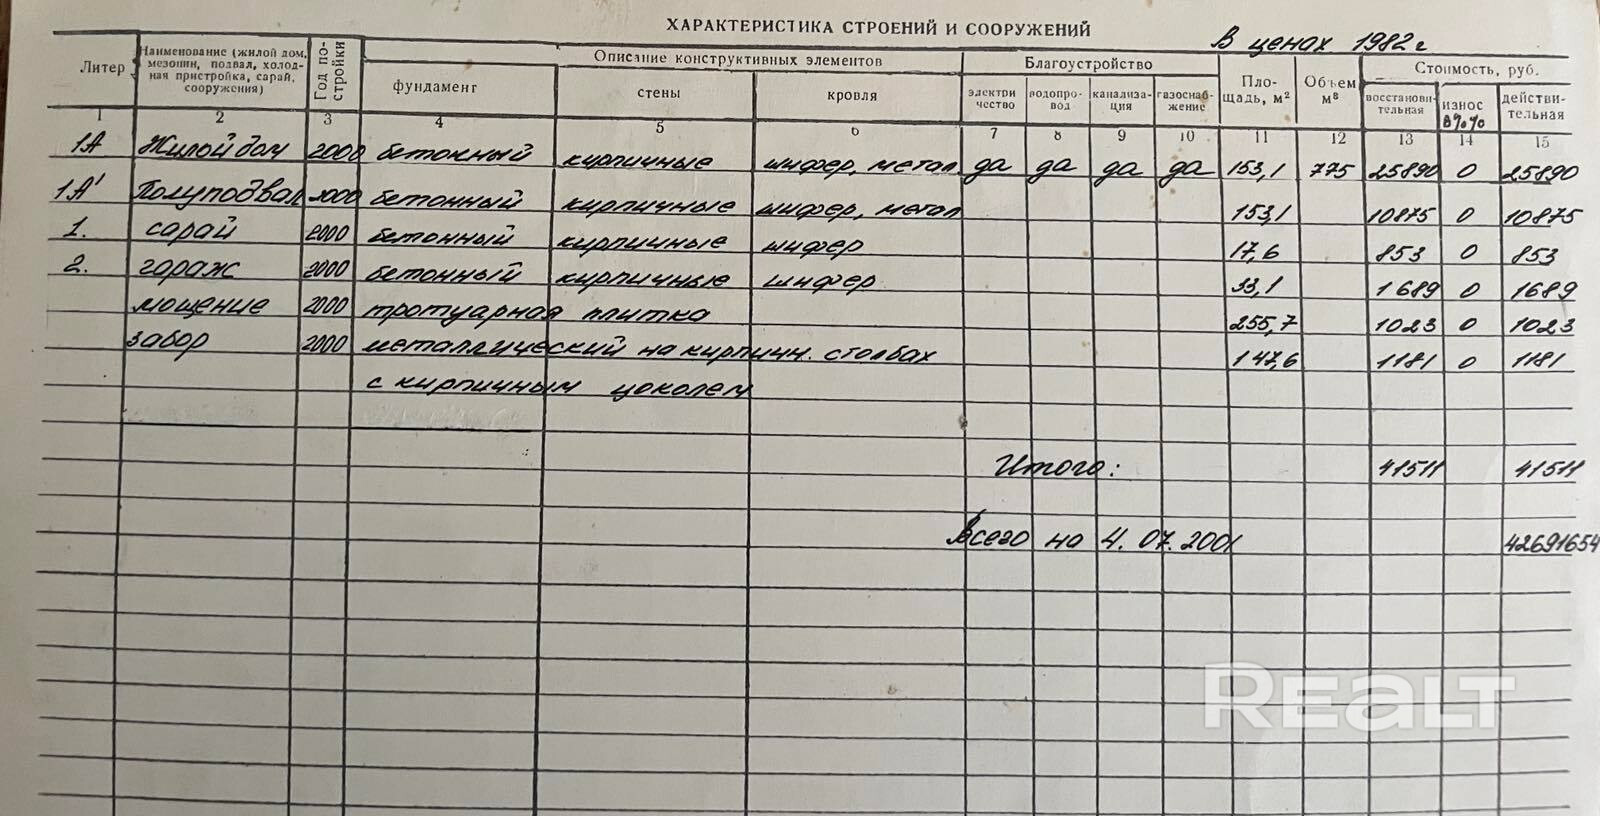 ХАРАКТЕРИСТИКА СТРОЕНИЙ И СООРУЖЕНИЙ
В ценах 1982 г
Литер
Наименование (жилой дом, мезонин, подвал, холодная пристройка, сарай, сооружения)
Год постройки
Описание конструктивных элементов
фундамент
стены
кровля
Благоустройство
электричество
водопровод
канализация
газоснабжение
Площадь, м²
Объем м³
Стоимость, руб.
восстановительная
износ в %%
действительная
1 2 3 4 5 6 7 8 9 10 11 12 13 14 15
1А Жилой дом 2000 бетонный кирпичные шифер, метал. да да да да 153,1 775 25890 0 25890
1А' Полуподвал 2000 бетонный кирпичные шифер, метал 153,1 10875 0 10875
1. сарай 2000 бетонный кирпичные шифер 17,6 853 0 853
2. гараж 2000 бетонный кирпичные шифер 33,1 1689 0 1689
мощение 2000 тротуарная плитка 255,7 1023 0 1023
забор 2000 металлический на кирпичн. столбах 147,6 1181 0 1181
с кирпичным цоколем
Итого: 41511 41511
Всего на 4.07.2001 42691654
REALT